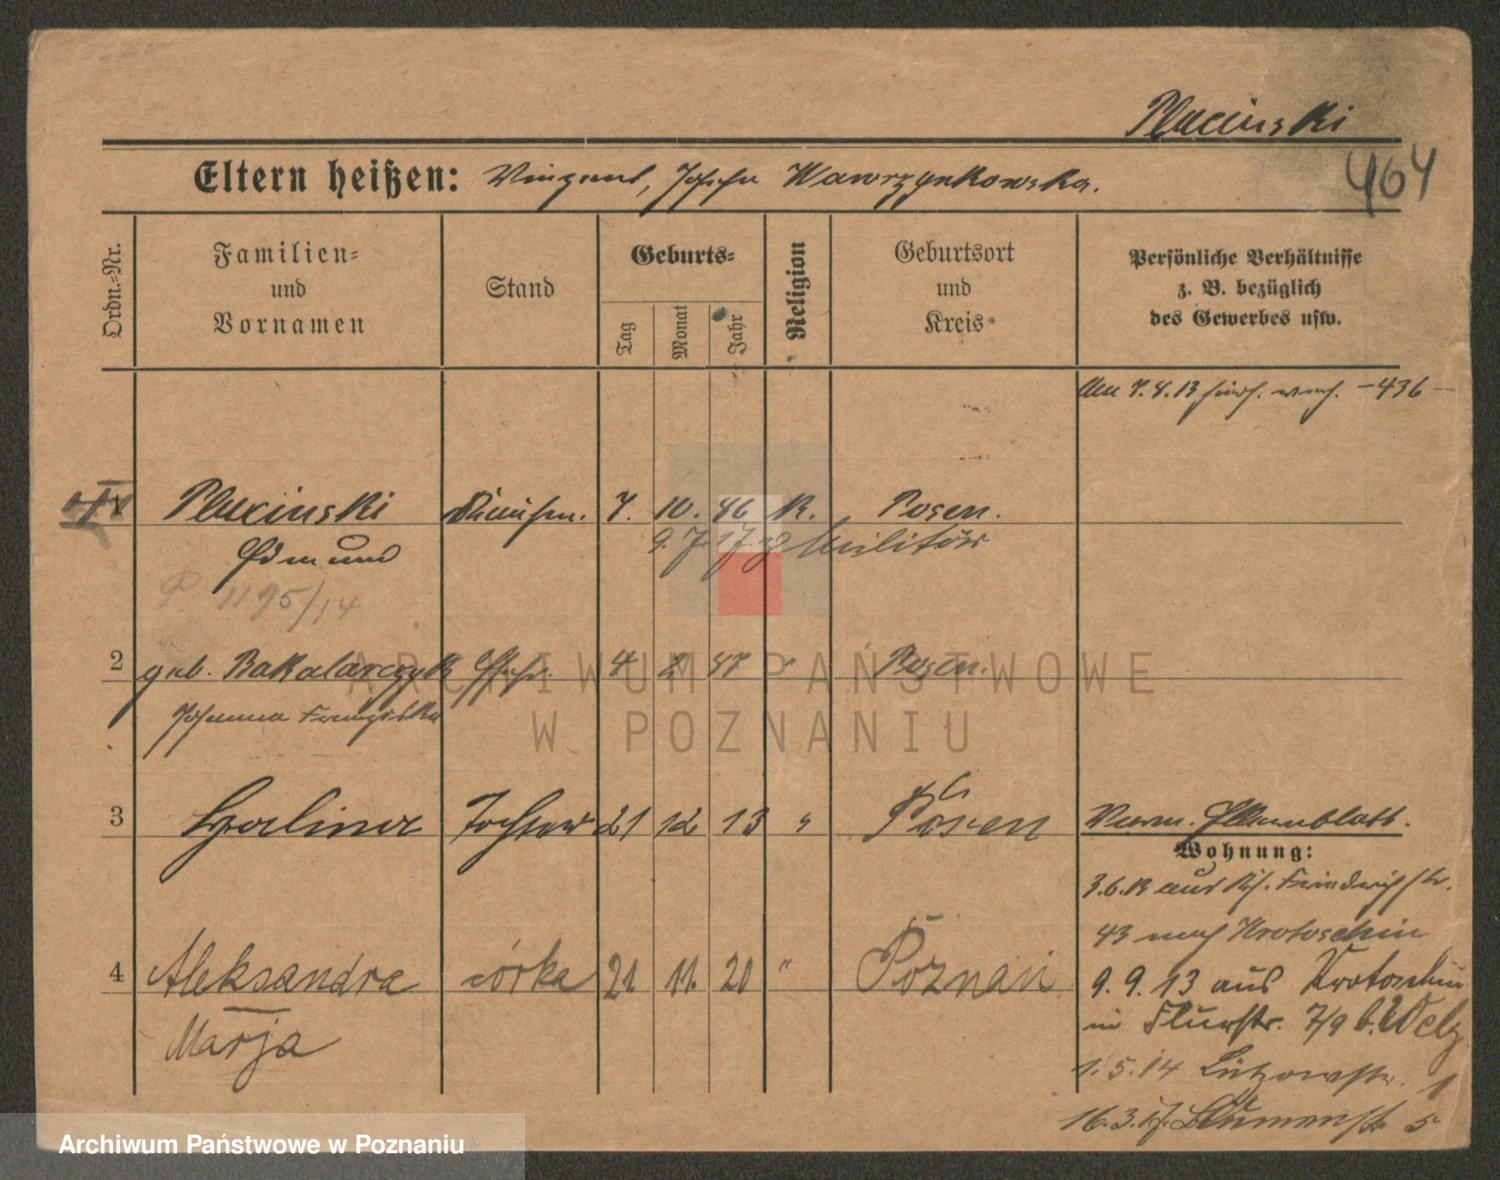 Plucinski
464
Eltern heißen: Vinzent, Josefa Wawrzynkowska.
Ordn.-Nr.
Familien-
und
Vornamen
Stand
Geburts-
Tag
Monat
Jahr
Religion
Geburtsort
und
Kreis
Persönliche Verhältnisse
z. B. bezüglich
des Gewerbes usw.
Am 7.8.13 -436-
Plucinski 7. 10. 86 K. Posen.
Edmund
9.7.17. z Militär
P. 1195/14
2 geb. Bakalarczyk Ehefr. 4 2 87 " Posen.
Johanna Franziska
3 Halina Tochter 21 12 13 " Posen
Verm. Elternblatt.
Wohnung:
3.6.13 aus Friedrichstr.
43 nach Krotoschin
4 Aleksandra córka 21. 11. 20 " Poznań
Marja
9.9.13 aus Krotoschin
in Flurstr. 7/9 b. Welz
1.5.14 Lützowstr. 1
16.3.17. Blumenstr 5
ARCHIWUM PAŃSTWOWE
W POZNANIU
Archiwum Państwowe w Poznaniu